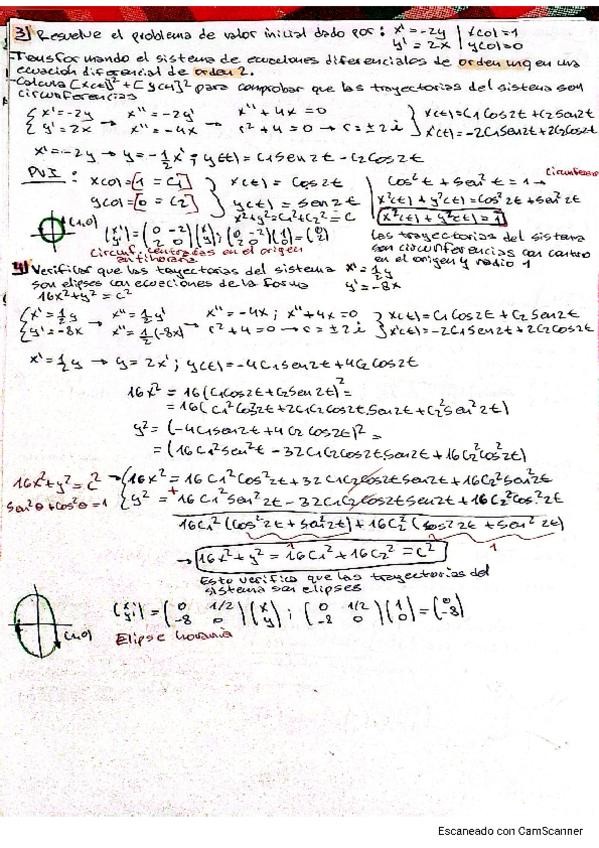 3) Resuelve el problema de valor inicial dado por: x' = -2y | x(0)=1
y' = 2x | y(0)=0
-Transformando el sistema de ecuaciones diferenciales de orden uno en una
ecuación diferencial de orden 2.
-Calcula [x(t)]² + [y(t)]² para comprobar que las trayectorias del sistema son
circunferencias
{x'=-2y → x''=-2y' → x''+4x=0 } x(t)=C1Cos2t+C2Sen2t
{y'=2x x''=-4x r²+4=0 → r=±2i x'(t)=-2C1Sen2t+2C2Cos2t
x'=-2y → y=-1/2 x' ; y(t)=C1Sen2t-C2Cos2t
PVI: x(0)=[1=C1] } x(t)=Cos2t | Cos²t+Sen²t=1 → Circunferencia
y(0)=[0=C2] y(t)=Sen2t | x²(t)+y²(t)=Cos²2t+Sen²2t
x²+y²=C1²+C2²=C
(1,0) (x' y')=(0 -2 2 0)(x y); (0 -2 2 0)(1 0)=(0 2) x²(t)+y²(t)=1
Circunf. centradas en el origen
antihoraria
Las trayectorias del sistema
son circunferencias con centro
en el origen y radio 1
4) Verificar que las trayectorias del sistema x'=1/2 y
son elipses con ecuaciones de la forma y'=-8x
16x²+y²=C²
{x'=1/2 y → x''=1/2 y' → x''=-4x; x''+4x=0 } x(t)=C1Cos2t+C2Sen2t
{y'=-8x x''=1/2(-8x) r²+4=0 → r=±2i x'(t)=-2C1Sen2t+2C2Cos2t
x'=1/2 y → y=2x' ; y(t)=-4C1Sen2t+4C2Cos2t
16x²=16(C1Cos2t+C2Sen2t)²=
=16(C1²Cos²2t+2C1C2Cos2tSen2t+C2²Sen²2t)
y²=(-4C1Sen2t+4C2Cos2t)²=
=(16C1²Sen²t-32C1C2Cos2tSen2t+16C2²Cos²2t)
16x²+y²=C² → {16x²=16C1²Cos²2t+32C1C2Cos2tSen2t+16C2²Sen²2t
Sen²θ+Cos²θ=1 {y²=+16C1²Sen²2t-32C1C2Cos2tSen2t+16C2²Cos²2t
16C1²(Cos²2t+Sen²2t)+16C2²(Cos²2t+Sen²2t)
1 1
→ 16x²+y²=16C1²+16C2²=C²
Esto verifica que las trayectorias del
sistema son elipses
(1,0) (x' y')=(0 1/2 -8 0)(x y); (0 1/2 -8 0)(1 0)=(0 -8)
Elipse horaria
Escaneado con CamScanner